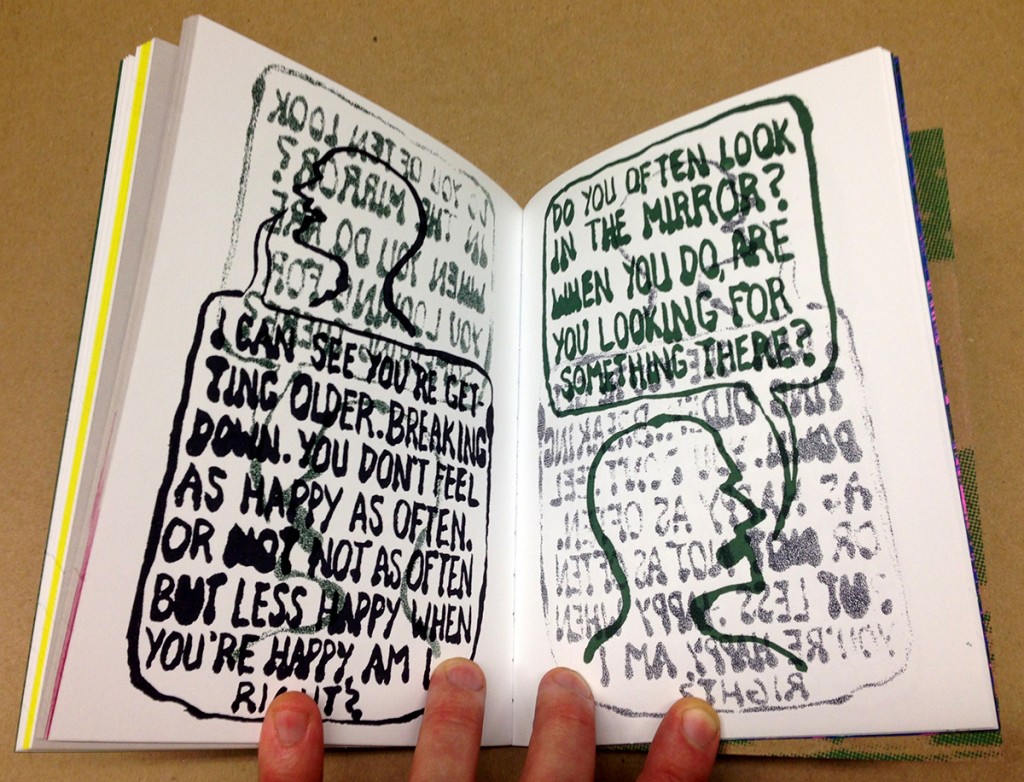 I CAN SEE YOU'RE GET-
TING OLDER. BREAKING
DOWN. YOU DON'T FEEL
AS HAPPY AS OFTEN.
OR NOT NOT AS OFTEN
BUT LESS HAPPY WHEN
YOU'RE HAPPY, AM I
RIGHT?
DO YOU OFTEN LOOK
IN THE MIRROR?
WHEN YOU DO, ARE
YOU LOOKING FOR
SOMETHING THERE?